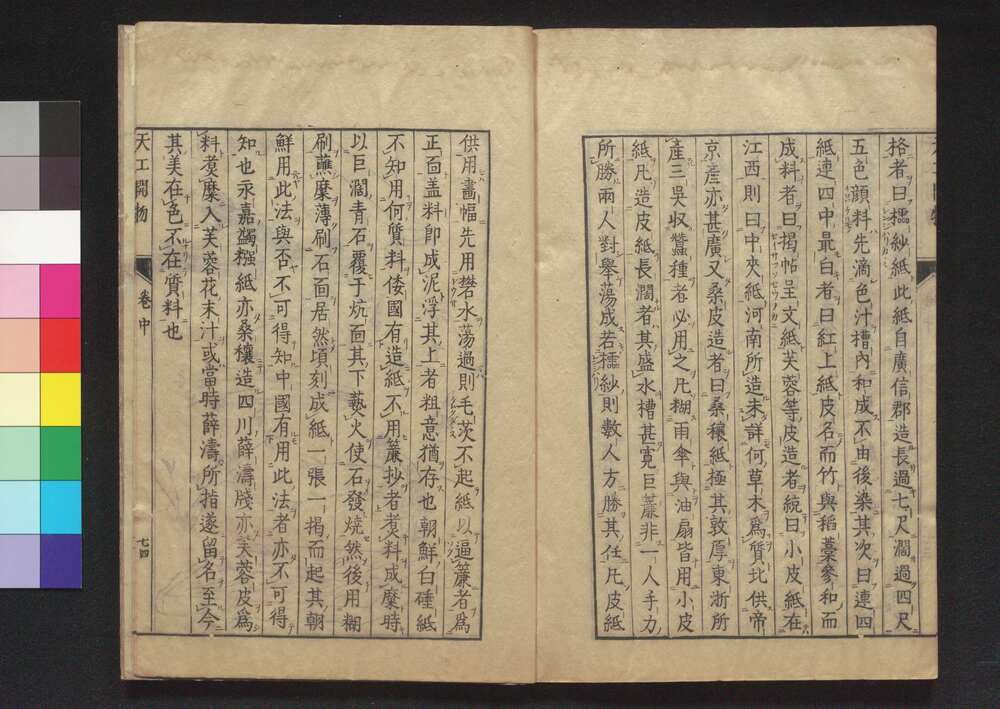 格者曰櫺紗紙此紙自廣信郡造長過七尺濶過四尺
五色顔料先滴色汁槽內和成不由後染其次曰連四
紙連四中最白者曰紅上紙皮名而竹與稻藁參和而
成料者曰揭帖呈文紙芙蓉等皮造者統曰小皮紙在
江西則曰中夾紙河南所造未詳何草木爲質北供帝
京產亦甚廣又桑皮造者曰桑穰紙極其敦厚東浙所
產三吳收蠶種者必用之凡糊雨傘與油扇皆用小皮
紙凡造皮紙長濶者其盛水槽甚寬巨簾非一人手力
所勝兩人對舉蕩成若櫺紗則數人方勝其任凡皮紙
供用畵幅先用礬水蕩過則毛茨不起紙以逼簾者爲
正面盖料卽成泥浮其上者粗意猶存也朝鮮白硾紙
不知用何質料倭國有造紙不用簾抄者煮料成糜時
以巨濶青石覆于炕面其下爇火使石發燒然後用糊
刷蘸糜薄刷石面居然頃刻成紙一張一揭而起其朝
鮮用此法與否不可得知中國有用此法者亦不可得
知也永嘉蠲糨紙亦桑穰造四川薛濤牋亦芙蓉皮爲
料煮糜入芙蓉花末汁或當時薛濤所指遂留名至今
其美在色不在質料也
天工開物
卷中
七四